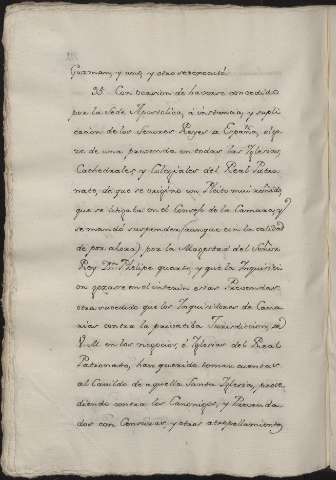 Guzman, y uno, y otro se executó.
35. Con ocasion de haverse concedido
por la Sede Apostolica, á instancia, y supli
cacion de los Señores Reyes de España, el go
ze de una prevenda en todas las Iglesias
Cathedrales y Colegiales del Real Patro
nato, de que se origino un Pleito mui reñido,
que se litigata en el Consejo de la Camara, y
se mandó suspender (aunque con la calidad
de por ahora) por la Magestad del Señor
Rey Dn. Phelipe quarto, y que la Inquisici
on gozasse en el interin estas Prevendas,
otra sucedido que los Inquisidores de Cana
rias contra la privatiba Jurisdiccion, de
V.M. en los negocios, é Iglesias del Real
Patronato, han querido tomar cuentas
al Cavildo de aquella Santa Iglesia, proce
diendo contra los Canonigos, y Prevenda
dos con Censuras, y otros atropellamientos